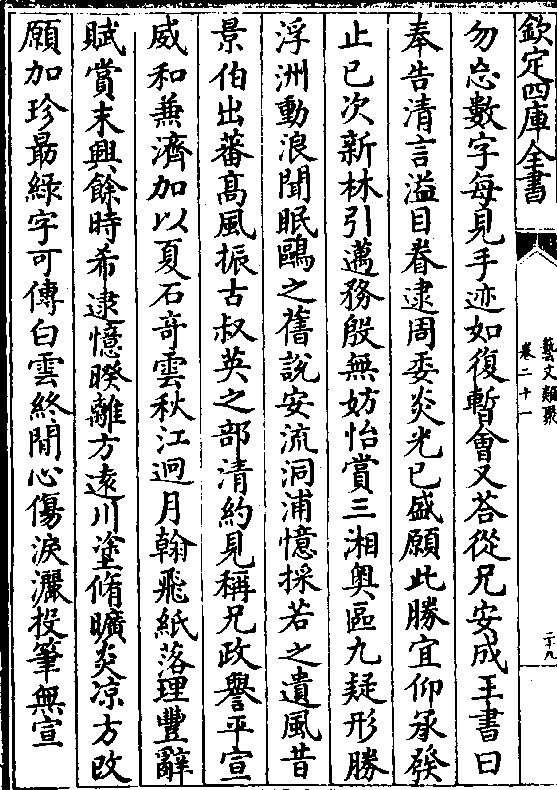 欽定四庫全書
藝文類聚
卷二十一
二十九
勿忘數字每見手迹如復暫會又荅從兄安成王書曰
奉告清言溢目眷逮周委炎光已盛願此勝宜仰承發
止已次新林引邁務殷無妨怡賞三湘奧區九疑形勝
浮洲動浪聞眠鷗之舊說安流洞浦憶採若之遺風昔
景伯出蕃髙風振古叔英之部清約見稱兄政譽平宣
威和兼濟加以夏石竒雲秋江迥月翰飛紙落理豐辭
賦賞末興餘時希逮憶暌離方遠川塗脩曠炎凉方改
願加珍勗緑字可傳白雲終閒心傷淚灑投筆無宣